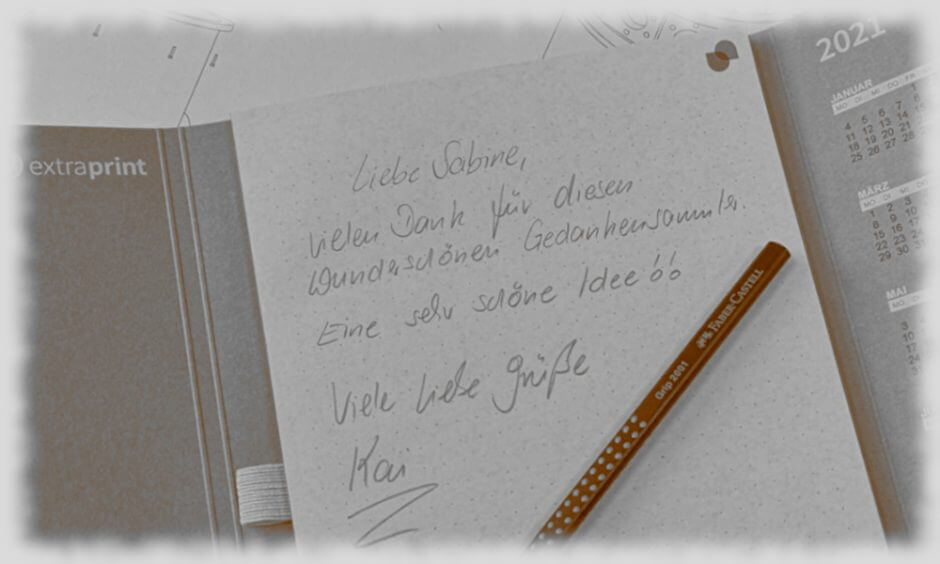 extraprint
Liebe Sabine,
vielen Dank für diesen
wunderschönen Gedankensammler.
Eine sehr schöne Idee!!
Viele liebe Grüße
Kai
FABER-CASTELL
Grip 2001
2021
JANUAR
MO DI MI DO FR
1
4 5 6 7 8
11 12 13 14
18 19 20 21
25 26 27 28
MÄRZ
MO DI MI
1 2 3
8 9 10
15 16 17
22 23 24
29 30 31
MAI
MO DI
3
10
17
24
31